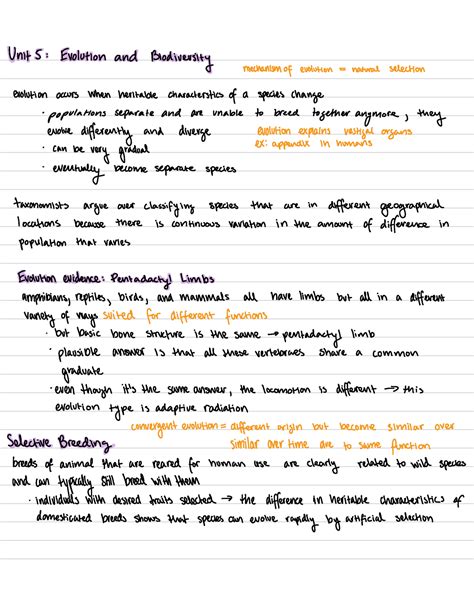 Unit 5: Evolution and Biodiversity
mechanism of evolution = natural selection
evolution occurs when heritable characteristics of a species change
· populations separate and are unable to breed together anymore, they
evolve differently and diverge
evolution explains vestigial organs
· can be very gradual
ex: appendix in humans
· eventually become separate species
taxonomists argue over classifying species that are in different geographical
locations because there is continuous variation in the amount of difference in
population that varies
Evolution evidence: Pentadactyl Limbs
amphibians, reptiles, birds, and mammals all have limbs but all in a different
variety of ways suited for different functions
· but basic bone structure is the same → pentadactyl limb
· plausible answer is that all these vertebrates share a common
graduate
· even though it's the same answer, the locomotion is different → this
evolution type is adaptive radiation
convergent evolution = different origin but become similar over
Selective Breeding
similar over time are to same function
breeds of animal that are reared for human use are clearly related to wild species
and can typically still breed with them
· individuals with desired traits selected → the difference in heritable characteristics of
domesticated breeds shows that species can evolve rapidly by artificial selection